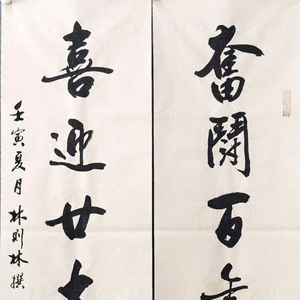 奮鬪百年
喜迎廿大
壬寅夏月林則林撰